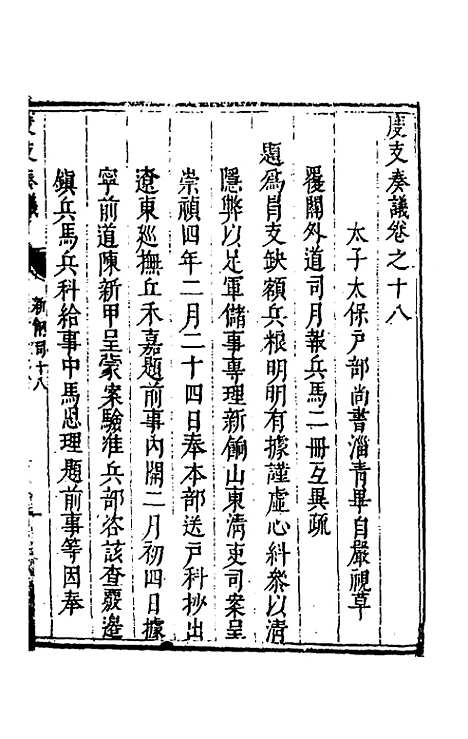 度支奏議卷之十八
太子太保戶部尚書淄青畢自嚴視草
覆關外道司月報兵馬二冊互異疏
題為冐支缺額兵根明明有據謹虛心糾叅以清
隱弊以足軍儲事專理新餉山東清吏司案呈
崇禎四年二月二十四日奉本部送戶科抄出
遼東巡撫丘禾嘉題前事內開二月初四日據
寧前道陳新甲呈蒙案驗准兵部咨該查覈邊
鎮兵馬兵科給事中馬思理題前事等因奉
度支奏議
新餉司十八